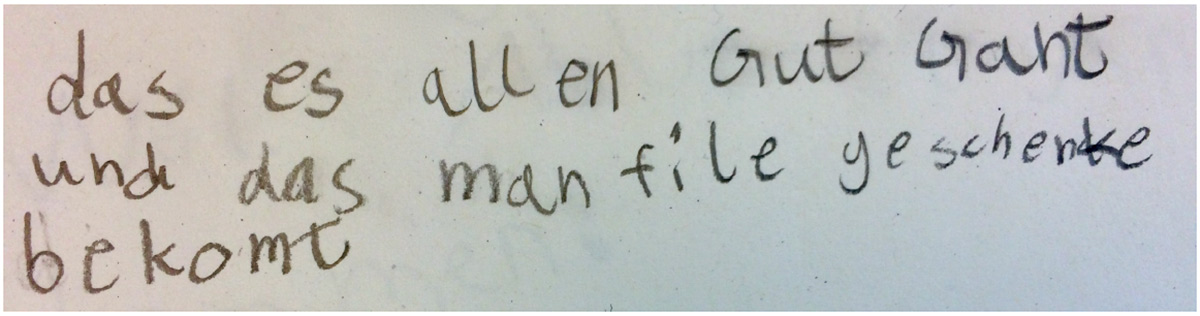 das es allen Gut Gaht
und das man file geschenke
bekomt